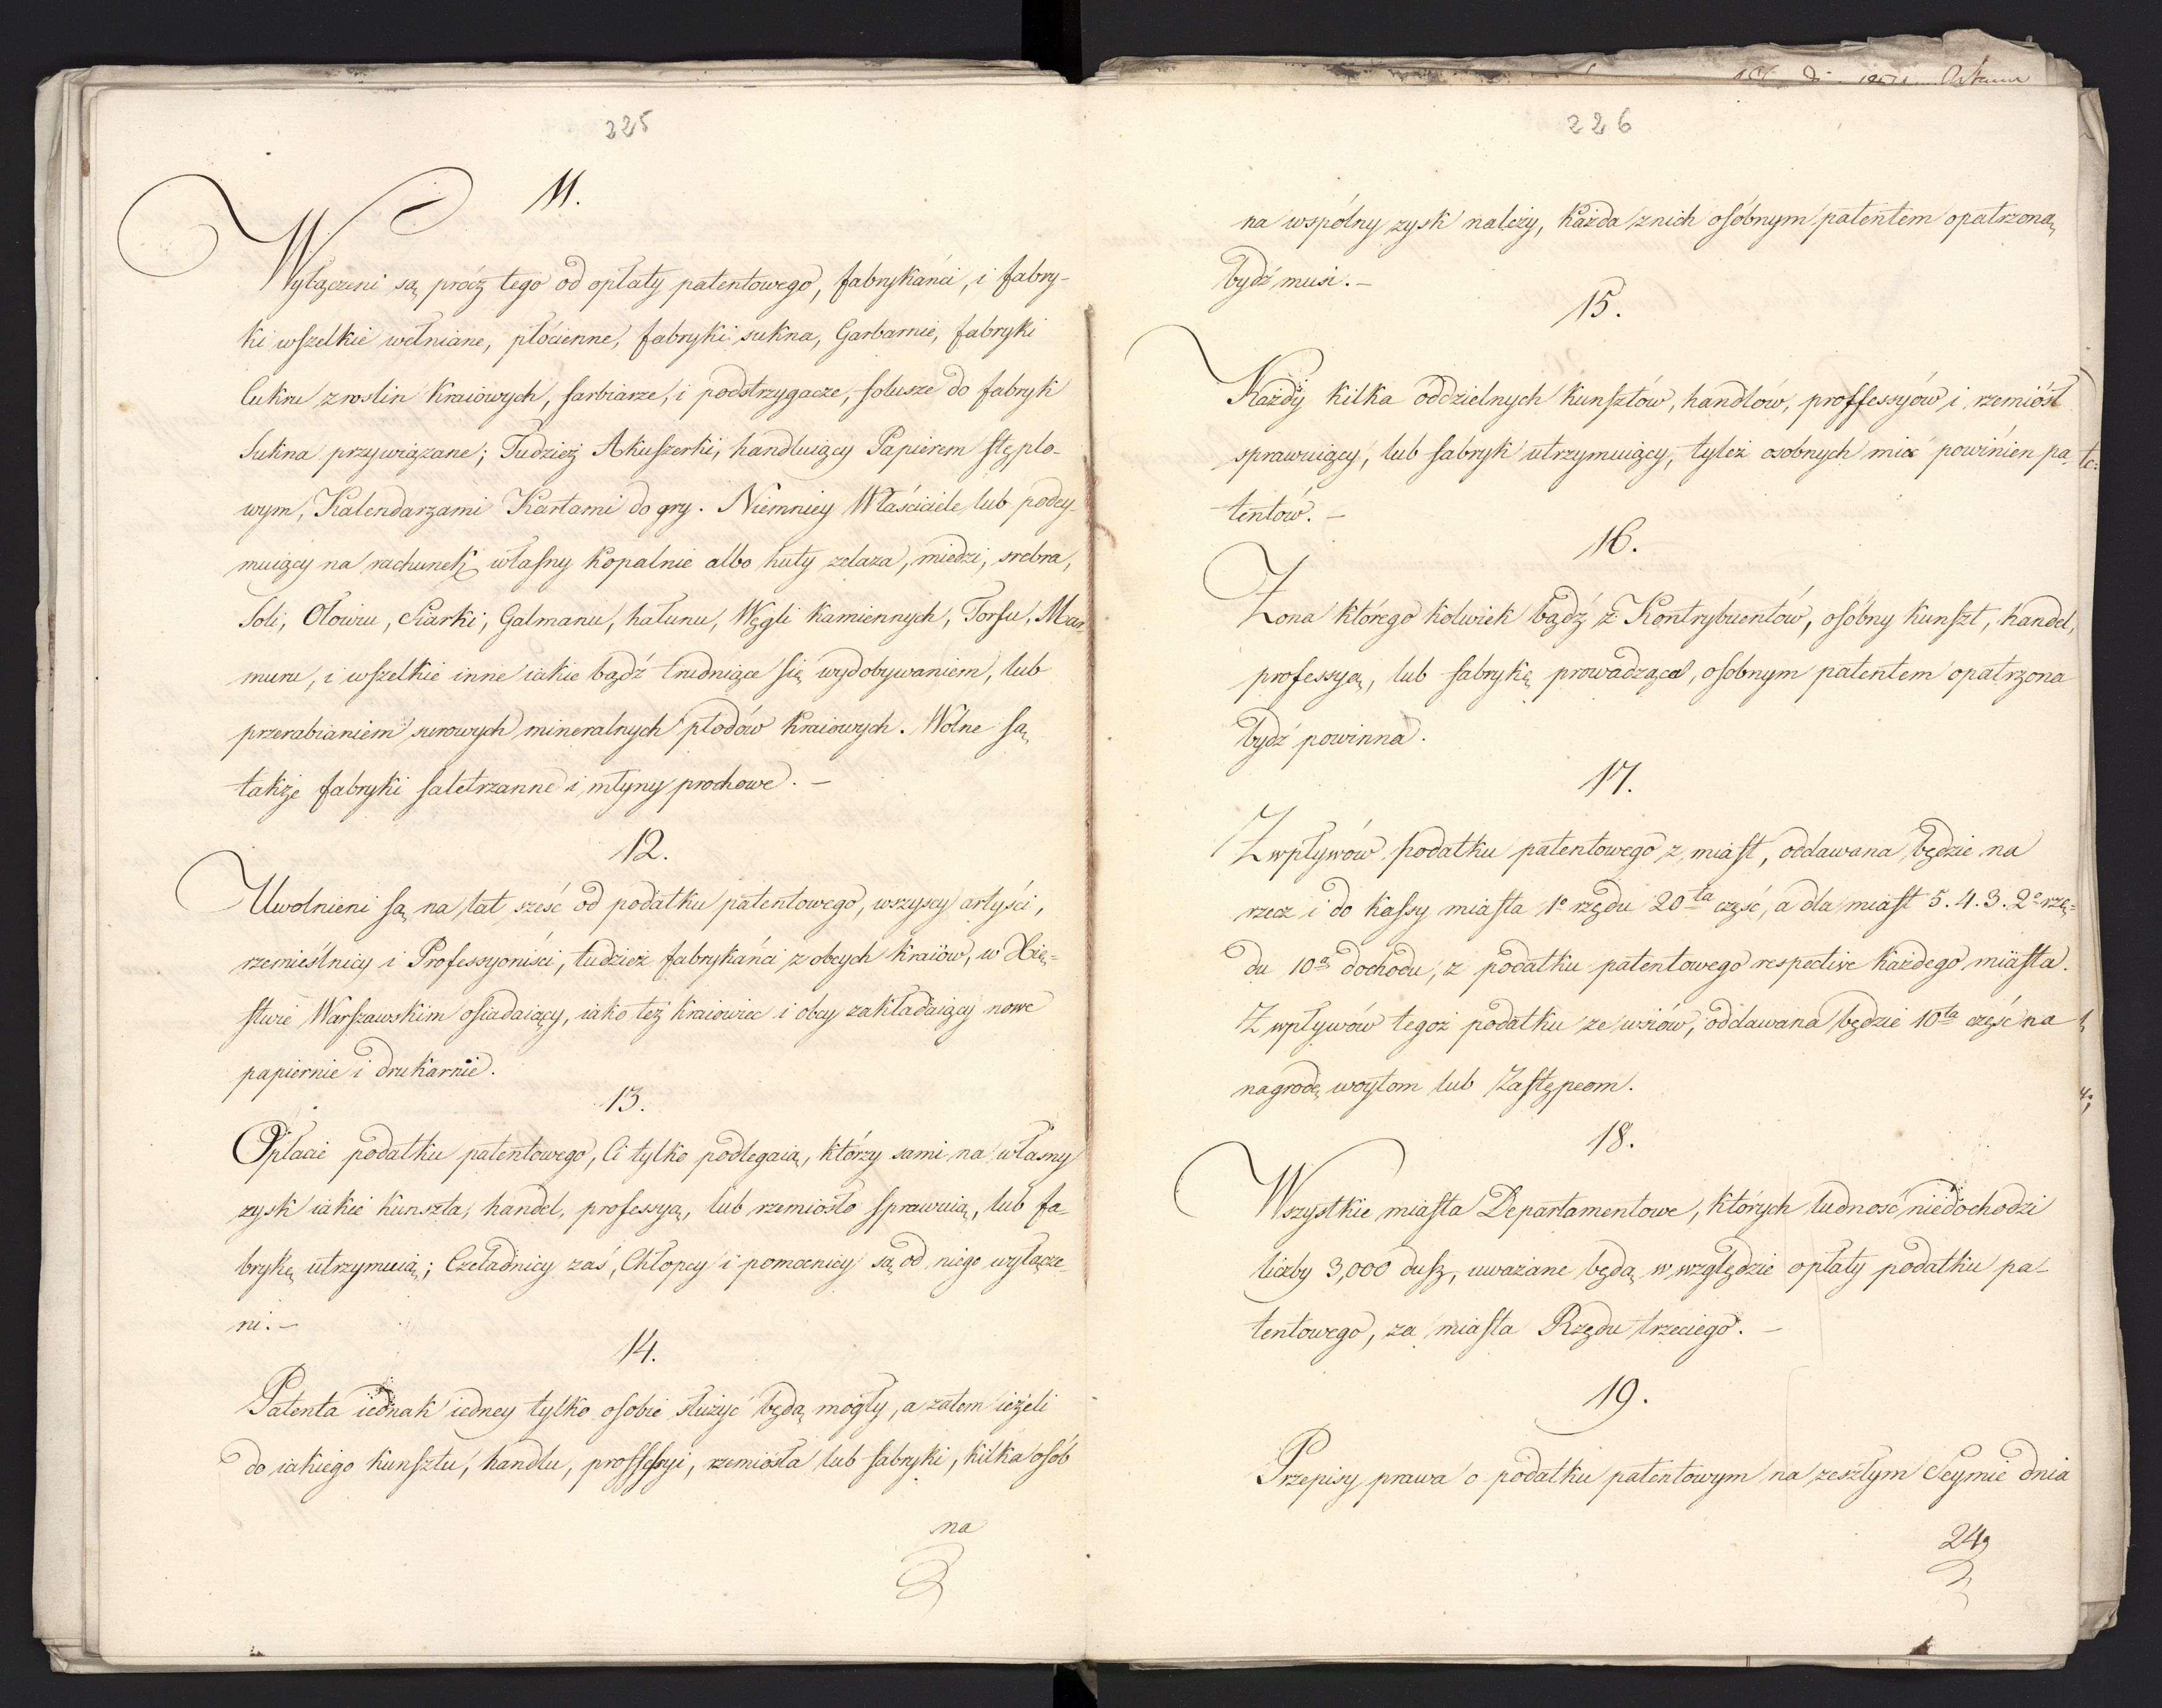 225
11.
Wyłączeni są prócz tego od opłaty patentowego, fabrykańci, i fabry-
ki wszelkie wełniane, płócienne, fabryki sukna, Garbarnie, fabryki
Cukru z roslin kraiowych, farbiarze, i podstrzygacze, folusze do fabryk
Sukna przywiązane; Tudzież Akuszerki, handluiący Papierem stęplo-
wym, Kalendarzami Kartami do gry. Niemniey Właściciele lub podey-
muiący na rachunek własny kopalnie albo huty zelaza, miedzi, srebra,
Soli, Ołowiu, Siarki, Galmanu, hałunu, Węgli kamiennych, Torfu, Mar-
muru, i wszelkie inne iakie bądź trudniące się wydobywaniem, lub
przerabianiem surowych mineralnych płodów kraiowych. Wolne są
także fabryki saletrzanne i młyny prochowe. —
12.
Uwolnieni są na lat sześć od podatku patentowego, wszyscy artyści,
rzemieślnicy i Professyoniści, tudzież fabrykańci z obcych kraiów, w Xię-
stwie Warszawskim osiadaiący, iako też kraiowiec i obcy zakładaiący nowe
papiernie i drukarnie.
13.
Opłacie podatku patentowego, Ci tylko podlegaią, którzy sami na własny
zysk iakie kunszta, handel, professyą, lub rzemiosło sprawuią, lub fa-
brykę utrzymuią; Czeladnicy zaś, Chłopcy i pomocnicy są od niego wyłącze-
ni. —
14.
Patenta iednak iedney tylko osobie służyć będą mogły, a zatem ieżeli
do iakiego kunsztu, handlu, proffessyi, rzemiosła lub fabryki, kilka osób
na
226
na wspólny zysk należy, każda z nich osóbnym patentem opatrzoną
bydź musi. —
15.
Każdy kilka oddzielnych kunsztów, handlów, proffessyów i rzemiósł
sprawuiący, lub fabryk utrzymuiący, tyleż osobnych mieć powinien pa-
tentów. —
16.
Zona którego kolwiek bądź z Kontrybuentów, osóbny kunszt, handel,
professyą, lub fabrykę prowadząca, osobnym patentem opatrzona
bydź powinna.
17.
Z wpływów podatku patentowego z miast, oddawana będzie na
rzecz i do kassy miasta 1º rzędu 20ta część, a dla miast 5. 4. 3. 2º rzę=
du 10a dochodu, z podatku patentowego respective każdego miasta.
Z wpływów tegoż podatku ze wsiów, oddawana będzie 10ta część na
nagrodę woytom lub Zastępcom.
18.
Wszystkie miasta Departamentowe, których ludność niedochodzi
liczby 3,000 dusz, uważane będą w względzie opłaty podatku pa-
tentowego, za miasta Rzędu trzeciego. —
19.
Przepisy prawa o podatku patentowym na zeszłym Seymie dnia
24